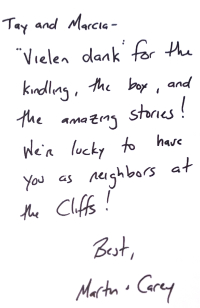 Tay and Marcia-
"Vielen dank" for the
kindling, the box, and
the amazing stories!
We're lucky to have
you as neighbors at
the Cliffs!
Best,
Martin + Carey